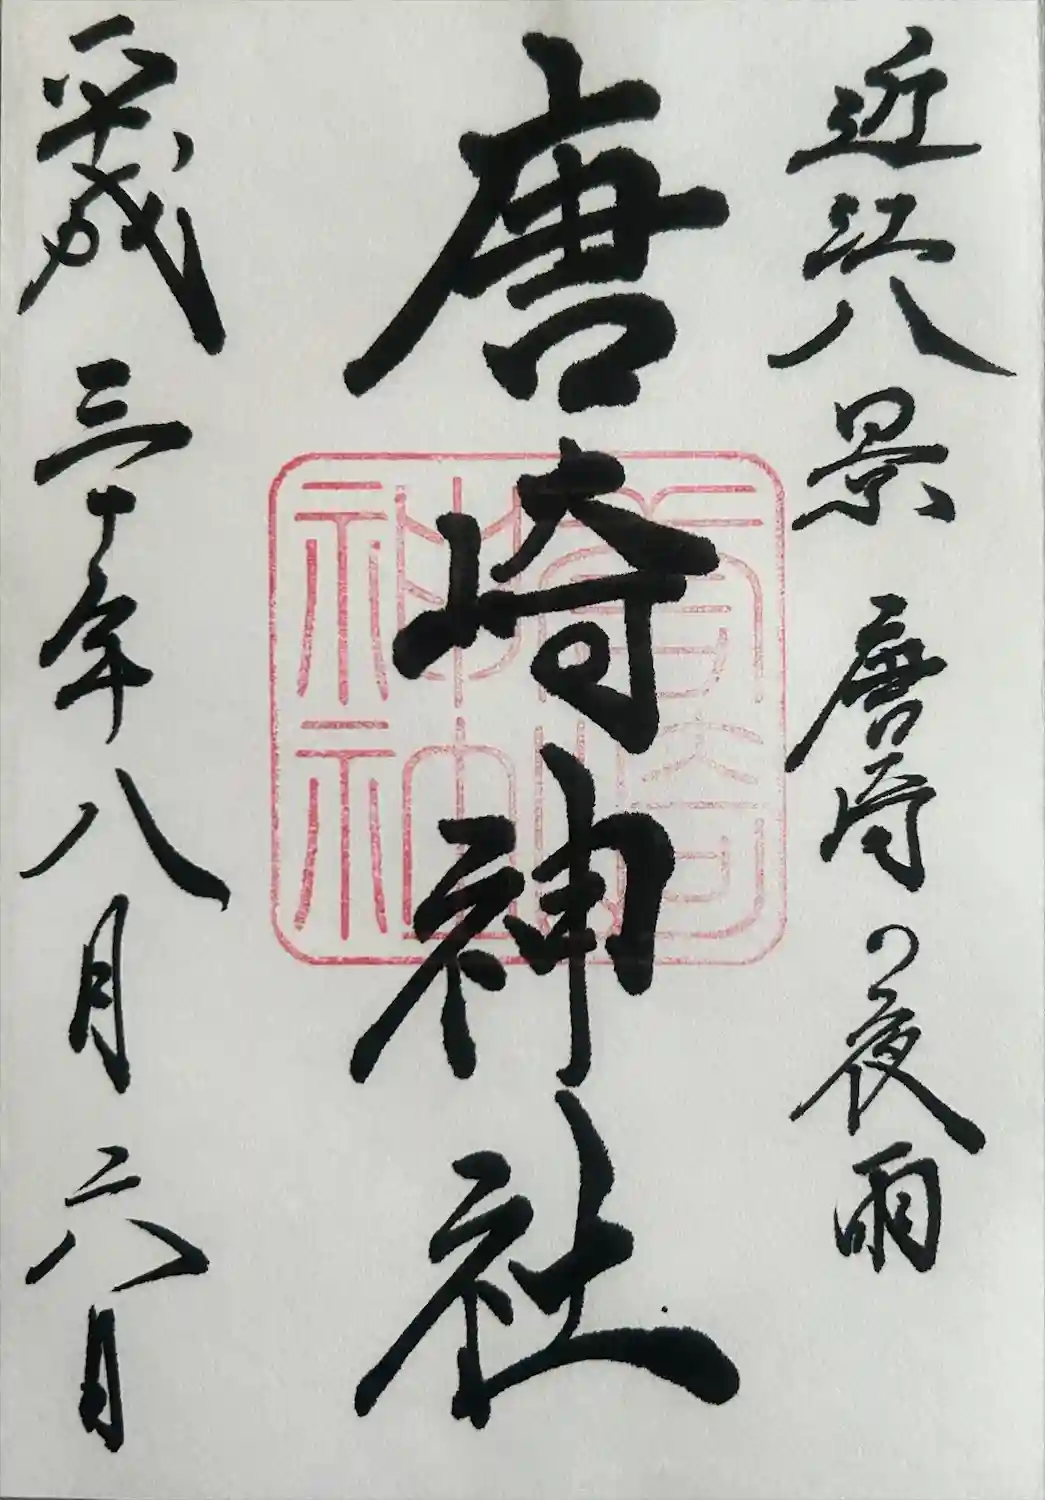 近江八景 唐崎の夜雨
唐崎神社
平成三十年八月六日
唐崎
神社